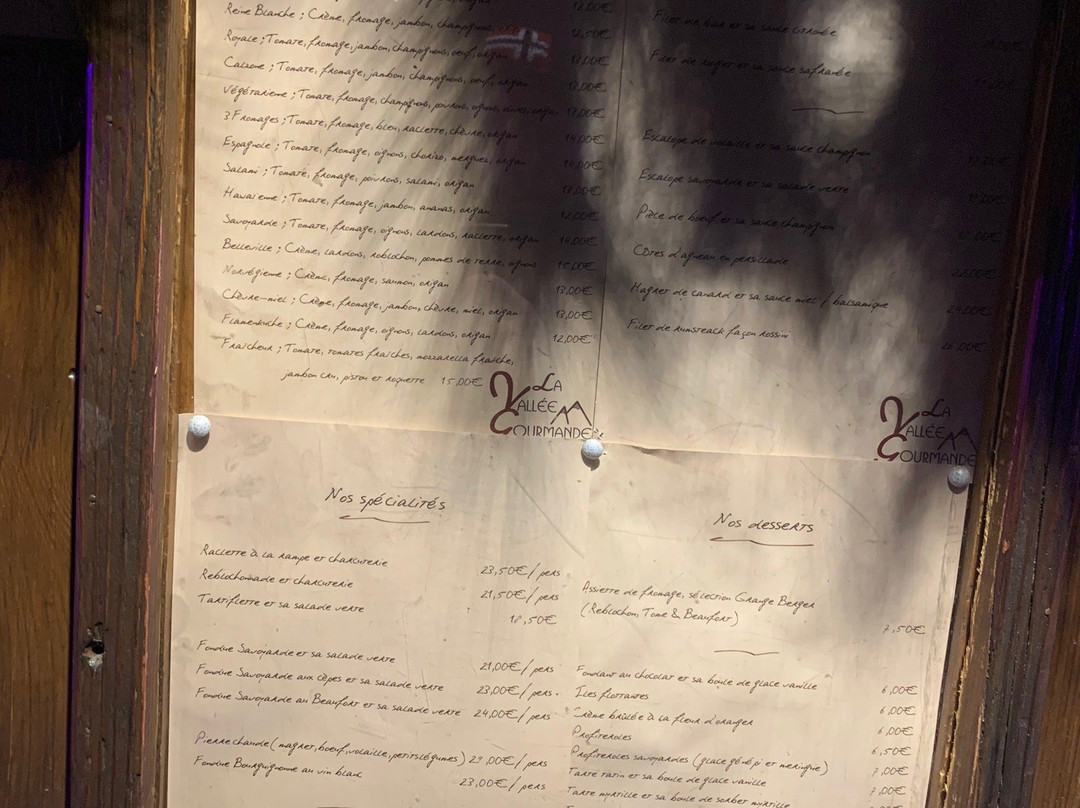 12,00€
Reine Blanche ; Crème, fromage, jambon, champignons,
12,50€
Royale ; Tomate, fromage, jambon, champignons, oeuf, origan
13,00€
Calzone ; Tomate, fromage, jambon, champignons, oeuf, origan
13,00€
Végétarienne ; Tomate, fromage, champignons, poivrons, oignons, olives, origan
13,00€
3 Fromages ; Tomate, fromage, bleu, raclette, chèvre, origan
14,00€
Espagnole ; Tomate, fromage, oignons, chorizo, merguez, origan
14,00€
Salami ; Tomate, fromage, poivrons, salami, origan
13,00€
Hawaïenne ; Tomate, fromage, jambon, ananas, origan
Savoyarde ; Tomate, fromage, oignons, lardons, raclette, origan
14,00€
Belleville ; Crème, lardons, reblochon, pommes de terre, oignons
15,00€
Norvégienne ; Crème, fromage, saumon, origan
13,00€
Chèvre-miel ; Crème, fromage, jambon, chèvre, miel, origan
13,00€
Flamenkuche ; Crème, fromage, oignons, lardons, origan
12,00€
Fraîcheur ; Tomate, tomates fraîches, mozzarella fraîche,
jambon cru, pistou et roquette 15,00€
La
Vallée
Gourmande
Filet de bar et sa sauce
Filet de rouget et sa sauce safranée
Escalope de volaille et sa sauce champignon
Escalope savoyarde et sa salade verte
Pièce de boeuf et sa sauce champignon
Côtes d'agneau en persillade
Magret de canard et sa sauce miel / balsamique
24,00€
Filet de rumsteack façon rossini
La
Vallée
Gourmande
Nos spécialités
Raclette à la rampe et charcuterie
23,50€ / pers
Reblochonnade et charcuterie
21,50€ / pers
Tartiflette et sa salade verte
18,50€
Fondue Savoyarde et sa salade verte
21,00€ / pers
Fondue Savoyarde aux cèpes et sa salade verte
23,00€ / pers.
Fondue Savoyarde au Beaufort et sa salade verte 24,00€ / pers
Pierre chaude ( magret, boeuf, volaille, petits légumes ) 27,00€ / pers
Fondue Bourguignonne au vin blanc
23,00€ / pers
Nos desserts
Assiette de fromage, sélection Grange Berger
(Reblochon, Tome & Beaufort)
7,50€
Fondant au chocolat et sa boule de glace vanille
6,00€
Îles flottantes
6,00€
Crème brûlée à la fleur d'oranger
6,00€
Profiteroles
6,50€
Profiteroles savoyardes (glace génépi et meringue)
7,00€
Tarte tatin et sa boule de glace vanille
7,00€
Tarte myrtille et sa boule de sorbet myrtille